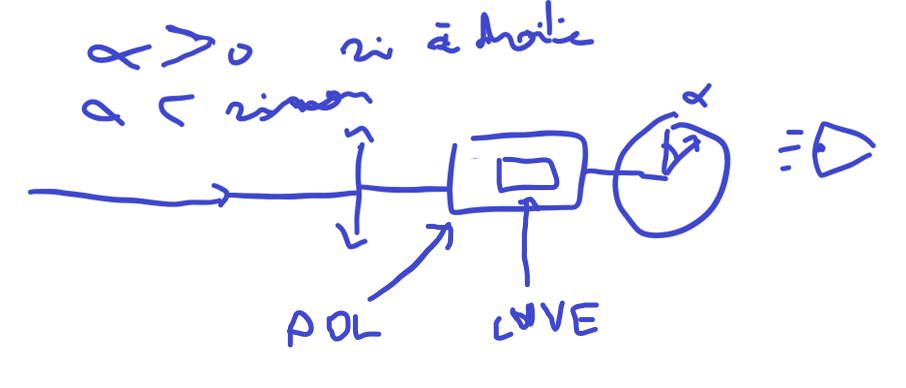 α > 0 si à droite
α < sinon
α
POL CUVE